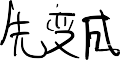 先变成